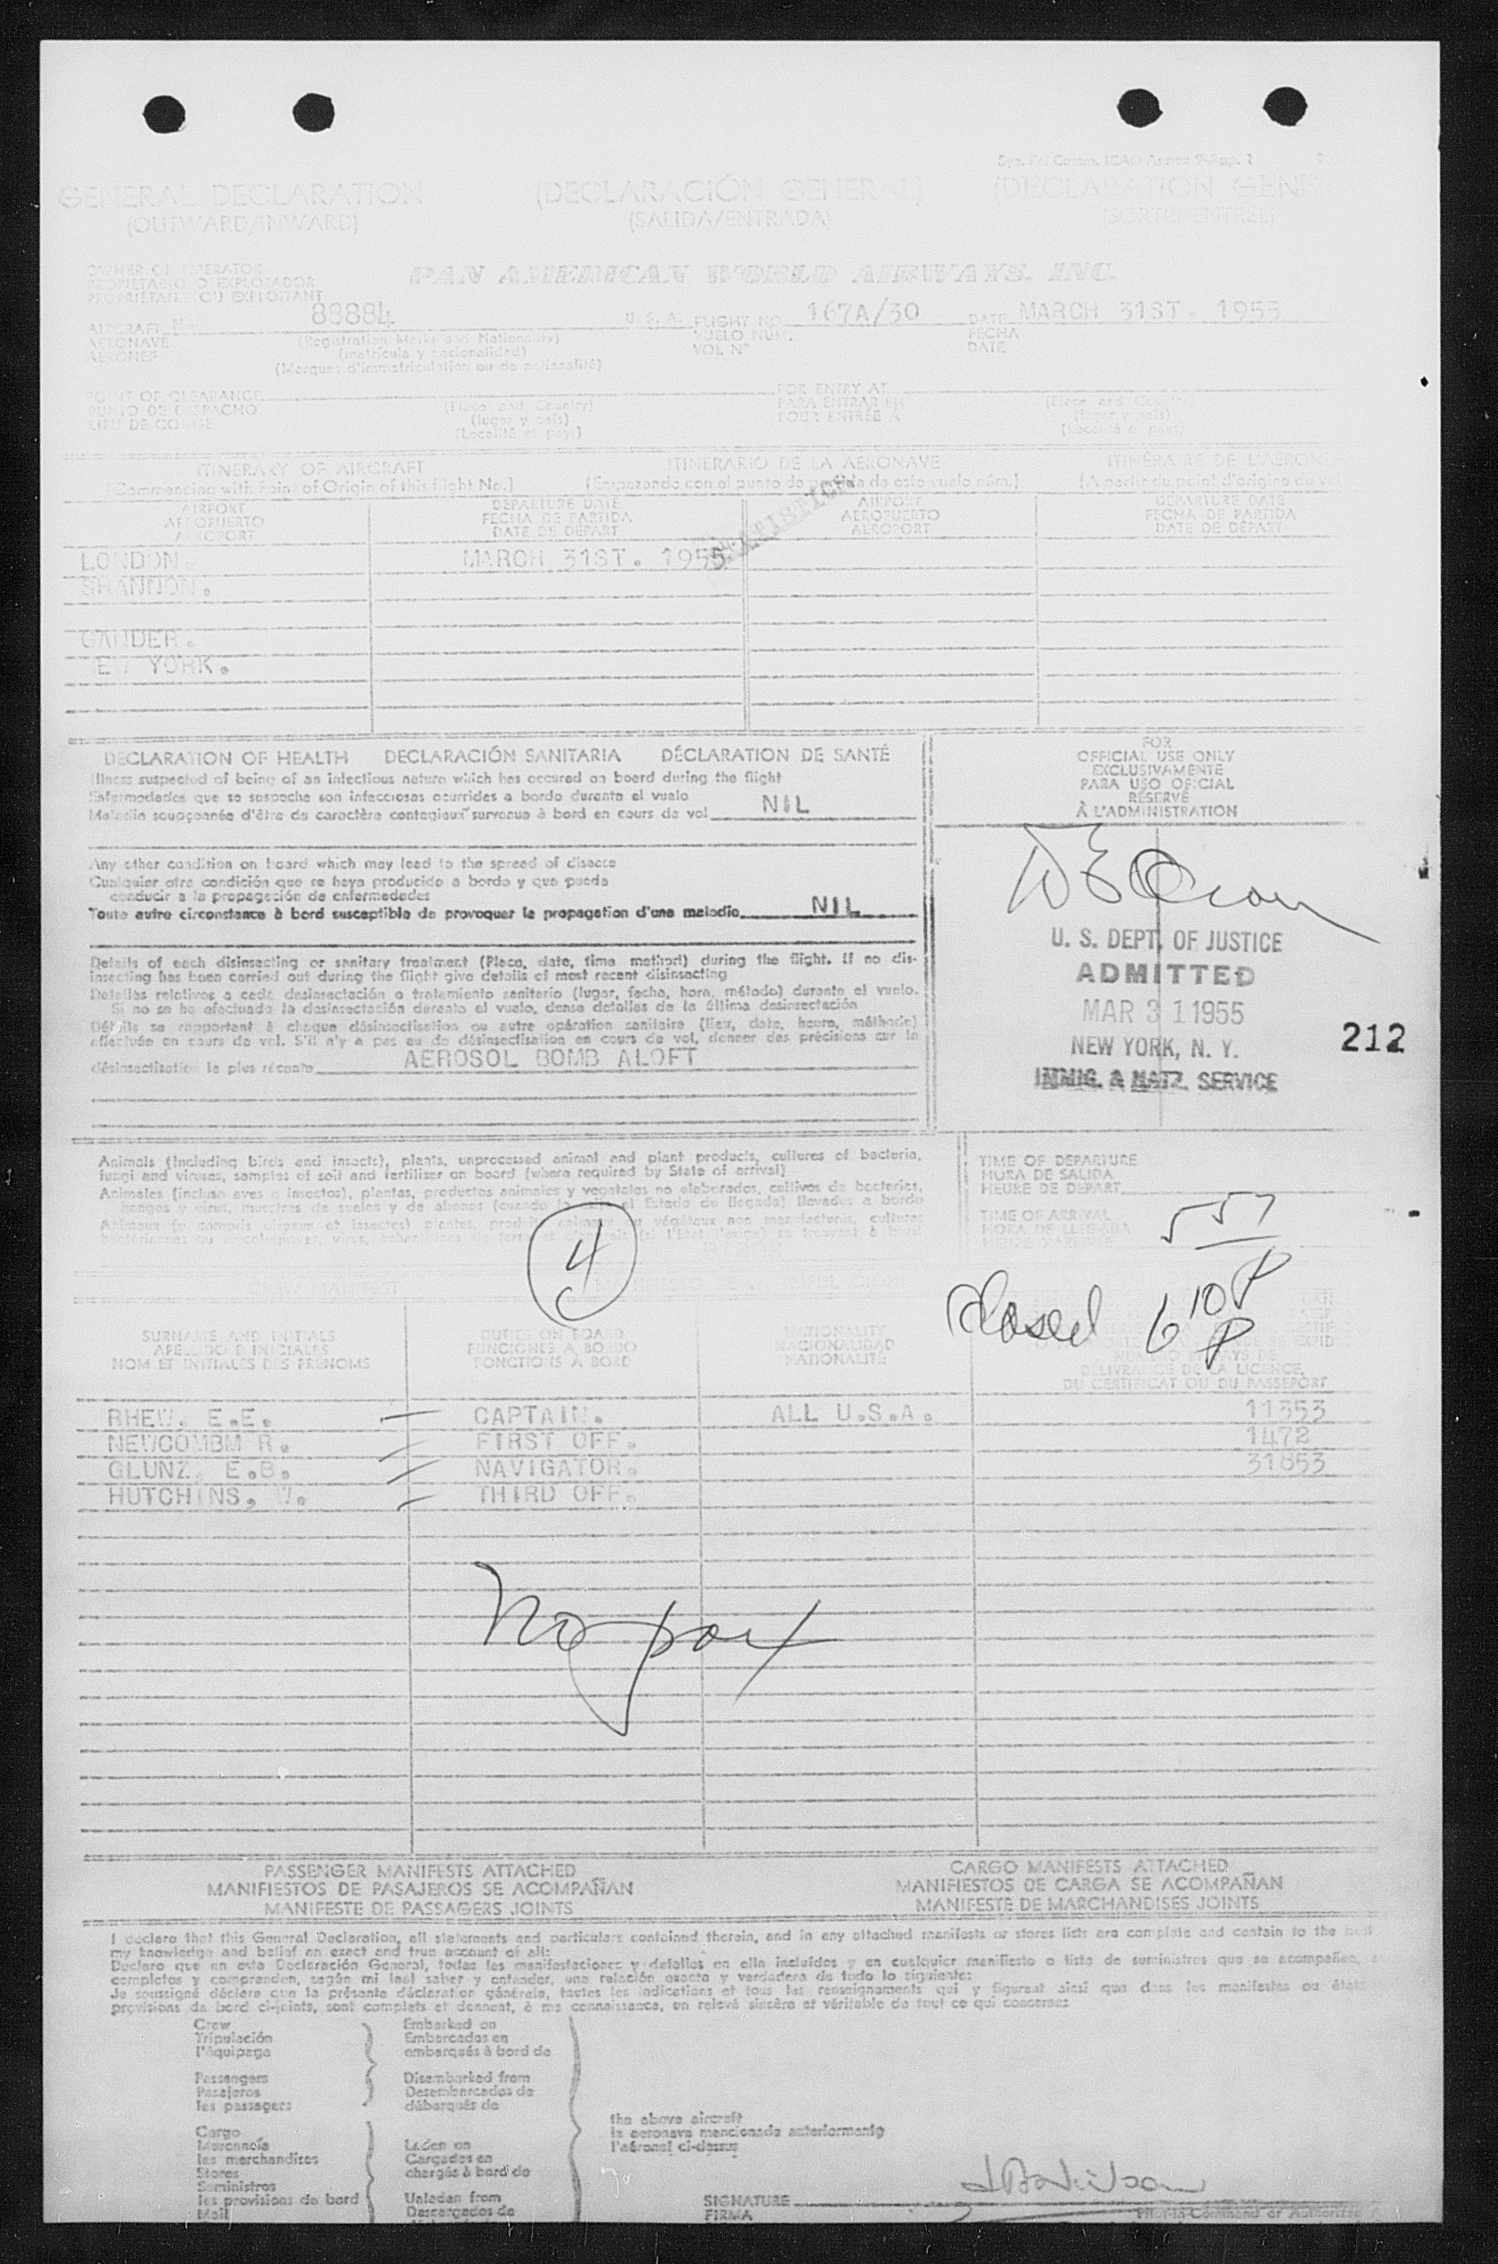 GENERAL DECLARATION (DECLARACIÓN GENERAL) (DECLARATION GEN
(OUTWARD/INWARD) (SALIDA/ENTRADA) (SORTE/ENTRÉE)
OWNER OR OPERATOR
PROPIETARIO O EXPLORADOR PAN AMERICAN WORLD AIRWAYS, INC.
PROPRIÉTAIRE OU EXPLOITANT
AIRCRAFT 88884 U. S. A. FLIGHT NO. 167A/30 DATE MARCH 31ST. 1955
AERONAVE (Registration Marks and Nationality) VUELO NUM. FECHA
AÉRONEF (matrícula y nacionalidad) VOL N° DATE
(Marques d'immatriculation ou de nationalité)
POINT OF CLEARANCE FOR ENTRY AT
PUNTO DE DESPACHO (Place and Country) PARA ENTRAR EN (Place and Country)
LIEU DE CONGÉ (lugar y país) POUR ENTRÉE A (lugar y país)
(Localité et pays) (Localité et pays)
ITINERARY OF AIRCRAFT ITINERARIO DE LA AERONAVE ITINÉRAIRE DE L'AÉRON
(Commencing with Point of Origin of this Flight No.) (Empezando con el punto de partida de este vuelo núm.) (A partir du point d'origine du vol
AIRPORT DEPARTURE DATE AIRPORT DEPARTURE DATE
AEROPUERTO FECHA DE PARTIDA AEROPUERTO FECHA DE PARTIDA
AEROPORT DATE DE DÉPART AEROPORT DATE DE DÉPART
STATISTICS
LONDON. MARCH 31ST. 1955
SHANNON.
GANDER.
EW YORK.
DECLARATION OF HEALTH DECLARACIÓN SANITARIA DÉCLARATION DE SANTÉ
Illness suspected of being of an infectious nature which has occured on board during the flight
Enfermedades que se sospeche son infecciosas ocurridas a bordo durante el vuelo
Maladie soupçonnée d'être de caractère contagieux survenue à bord en cours de vol NIL
Any other condition on board which may lead to the spread of disease
Cualquier otra condición que se haya producido a bordo y que pueda
conducir a la propagación de enfermedades
Toute autre circonstance à bord susceptible de provoquer la propagation d'une maladie NIL
Details of each disinsecting or sanitary treatment (Place, date, time method) during the flight. If no dis-
insecting has been carried out during the flight give details of most recent disinsecting
Detalles relativos a cada desinsectación o tratamiento sanitario (lugar, fecha, hora, método) durante el vuelo.
Si no se ha efectuado la desinsectación durante el vuelo, dense detalles de la última desinsectación
Détails se rapportant à chaque désinsectisation ou autre opération sanitaire (lieu, date, heure, méthode)
effectuée en cours de vol. S'il n'y a pas eu de désinsectisation en cours de vol, donner des précisions sur la
désinsectisation la plus récente AEROSOL BOMB ALOFT
FOR
OFFICIAL USE ONLY
EXCLUSIVAMENTE
PARA USO OFICIAL
RÉSERVÉ
À L'ADMINISTRATION
U. S. DEPT. OF JUSTICE
ADMITTED
MAR 31 1955
NEW YORK, N. Y.
IMMIG. & NATZ. SERVICE
212
Animals (including birds and insects), plants, unprocessed animal and plant products, cultures of bacteria,
fungi and viruses, samples of soil and fertiliser on board (where required by State of arrival)
Animales (incluso aves e insectos), plantas, productos animales y vegetales no elaborados, cultivos de bacterias,
hongos y virus, muestras de suelos y de abonos (cuando lo exija el Estado de llegada) llevados a bordo
TIME OF DEPARTURE
HORA DE SALIDA
HEURE DE DÉPART
TIME OF ARRIVAL 557
HORA DE LLEGADA
4
Closed 6 10 P
P
SURNAME AND INITIALS DUTIES ON BOARD NATIONALITY
APELLIDO E INICIALES FUNCIONES A BORDO NACIONALIDAD
NOM ET INITIALES DES PRÉNOMS FONCTIONS À BORD NATIONALITÉ
DÉLIVRANCE DE LA LICENCE,
DU CERTIFICAT OU DU PASSEPORT
RHEW, E.E. CAPTAIN. ALL U.S.A. 11353
NEWCOMBM R. FIRST OFF. 1472
GLUNZ, E.B. NAVIGATOR. 31853
HUTCHINS, W. THIRD OFF.
No pax
PASSENGER MANIFESTS ATTACHED CARGO MANIFESTS ATTACHED
MANIFIESTOS DE PASAJEROS SE ACOMPAÑAN MANIFIESTOS DE CARGA SE ACOMPAÑAN
MANIFESTE DE PASSAGERS JOINTS MANIFESTE DE MARCHANDISES JOINTS
I declare that this General Declaration, all statements and particulars contained therein, and in any attached manifests or stores lists are complete and contain to the best
my knowledge and belief an exact and true account of all:
Declaro que en esta Declaración General, todas las manifestaciones y detalles en ella incluidos y en cualquier manifiesto o lista de suministros que se acompañen,
completos y comprenden, según mi leal saber y entender, una relación exacta y verdadera de todo lo siguiente:
Je soussigné déclare que la présente déclaration générale, toutes les indications et tous les renseignements qui y figurent ainsi que dans les manifestes ou états
provisions de bord ci-joints, sont complets et donnent, à ma connaissance, un relevé sincère et véritable de tout ce qui concerne:
Crew Embarked on
Tripulación Embarcados en
l'équipage embarqués à bord de
Passengers Disembarked from
Pasajeros Desembarcados de
les passagers débarqués de
the above aircraft
Cargo la aeronave mencionada anteriormente
Mercancía Laden on l'aéronef ci-dessus
les marchandises Cargados en
Stores chargés à bord de
Suministros
les provisions de bord Unladen from SIGNATURE
Mail Descargados de FIRMA Pilot-in-Command or Authorized